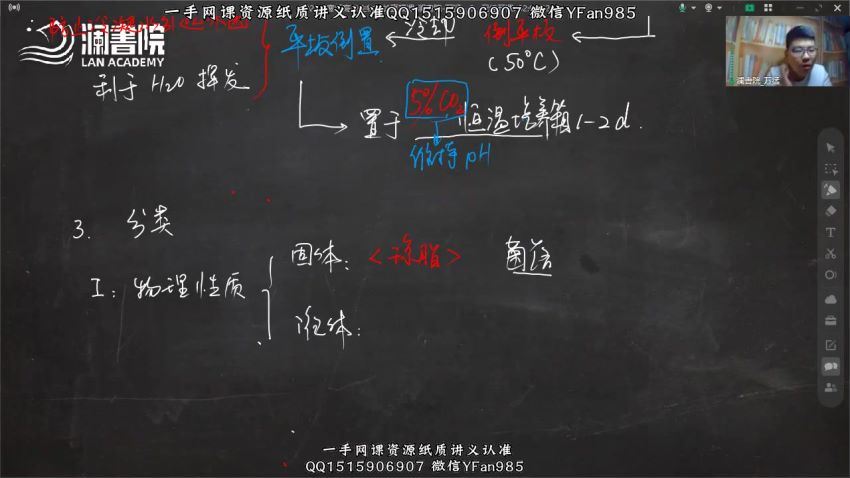 一手网课资源纸质讲义认准QQ1515906907 微信YFan985
澜書院
LAN ACADEMY
平板倒置 ← 冷却 倒平板
(50°C)
利于 H2O 挥发
置于 5% CO2 恒温培养箱 1-2d.
维持 pH
3. 分类
I: 物理性质
固体: <琼脂> 菌落
液体:
澜書院
一手网课资源纸质讲义认准
QQ1515906907 微信YFan985